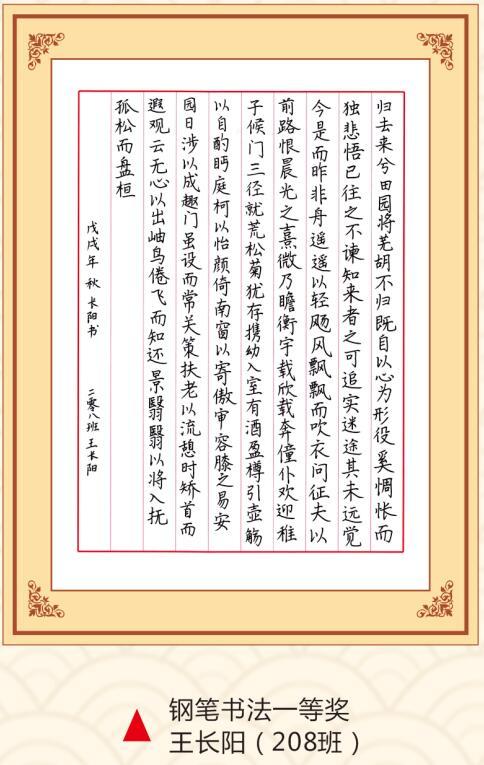 归去来兮田园将芜胡不归既自以心为形役奚惆怅而
独悲悟已往之不谏知来者之可追实迷途其未远觉
今是而昨非舟遥遥以轻飏风飘飘而吹衣问征夫以
前路恨晨光之熹微乃瞻衡宇载欣载奔僮仆欢迎稚
子候门三径就荒松菊犹存携幼入室有酒盈樽引壶觞
以自酌眄庭柯以怡颜倚南窗以寄傲审容膝之易安
园日涉以成趣门虽设而常关策扶老以流憩时矫首而
遐观云无心以出岫鸟倦飞而知还景翳翳以将入抚
孤松而盘桓
戊戌年 秋 长阳书 二零八班 王长阳
钢笔书法一等奖
王长阳（208班）